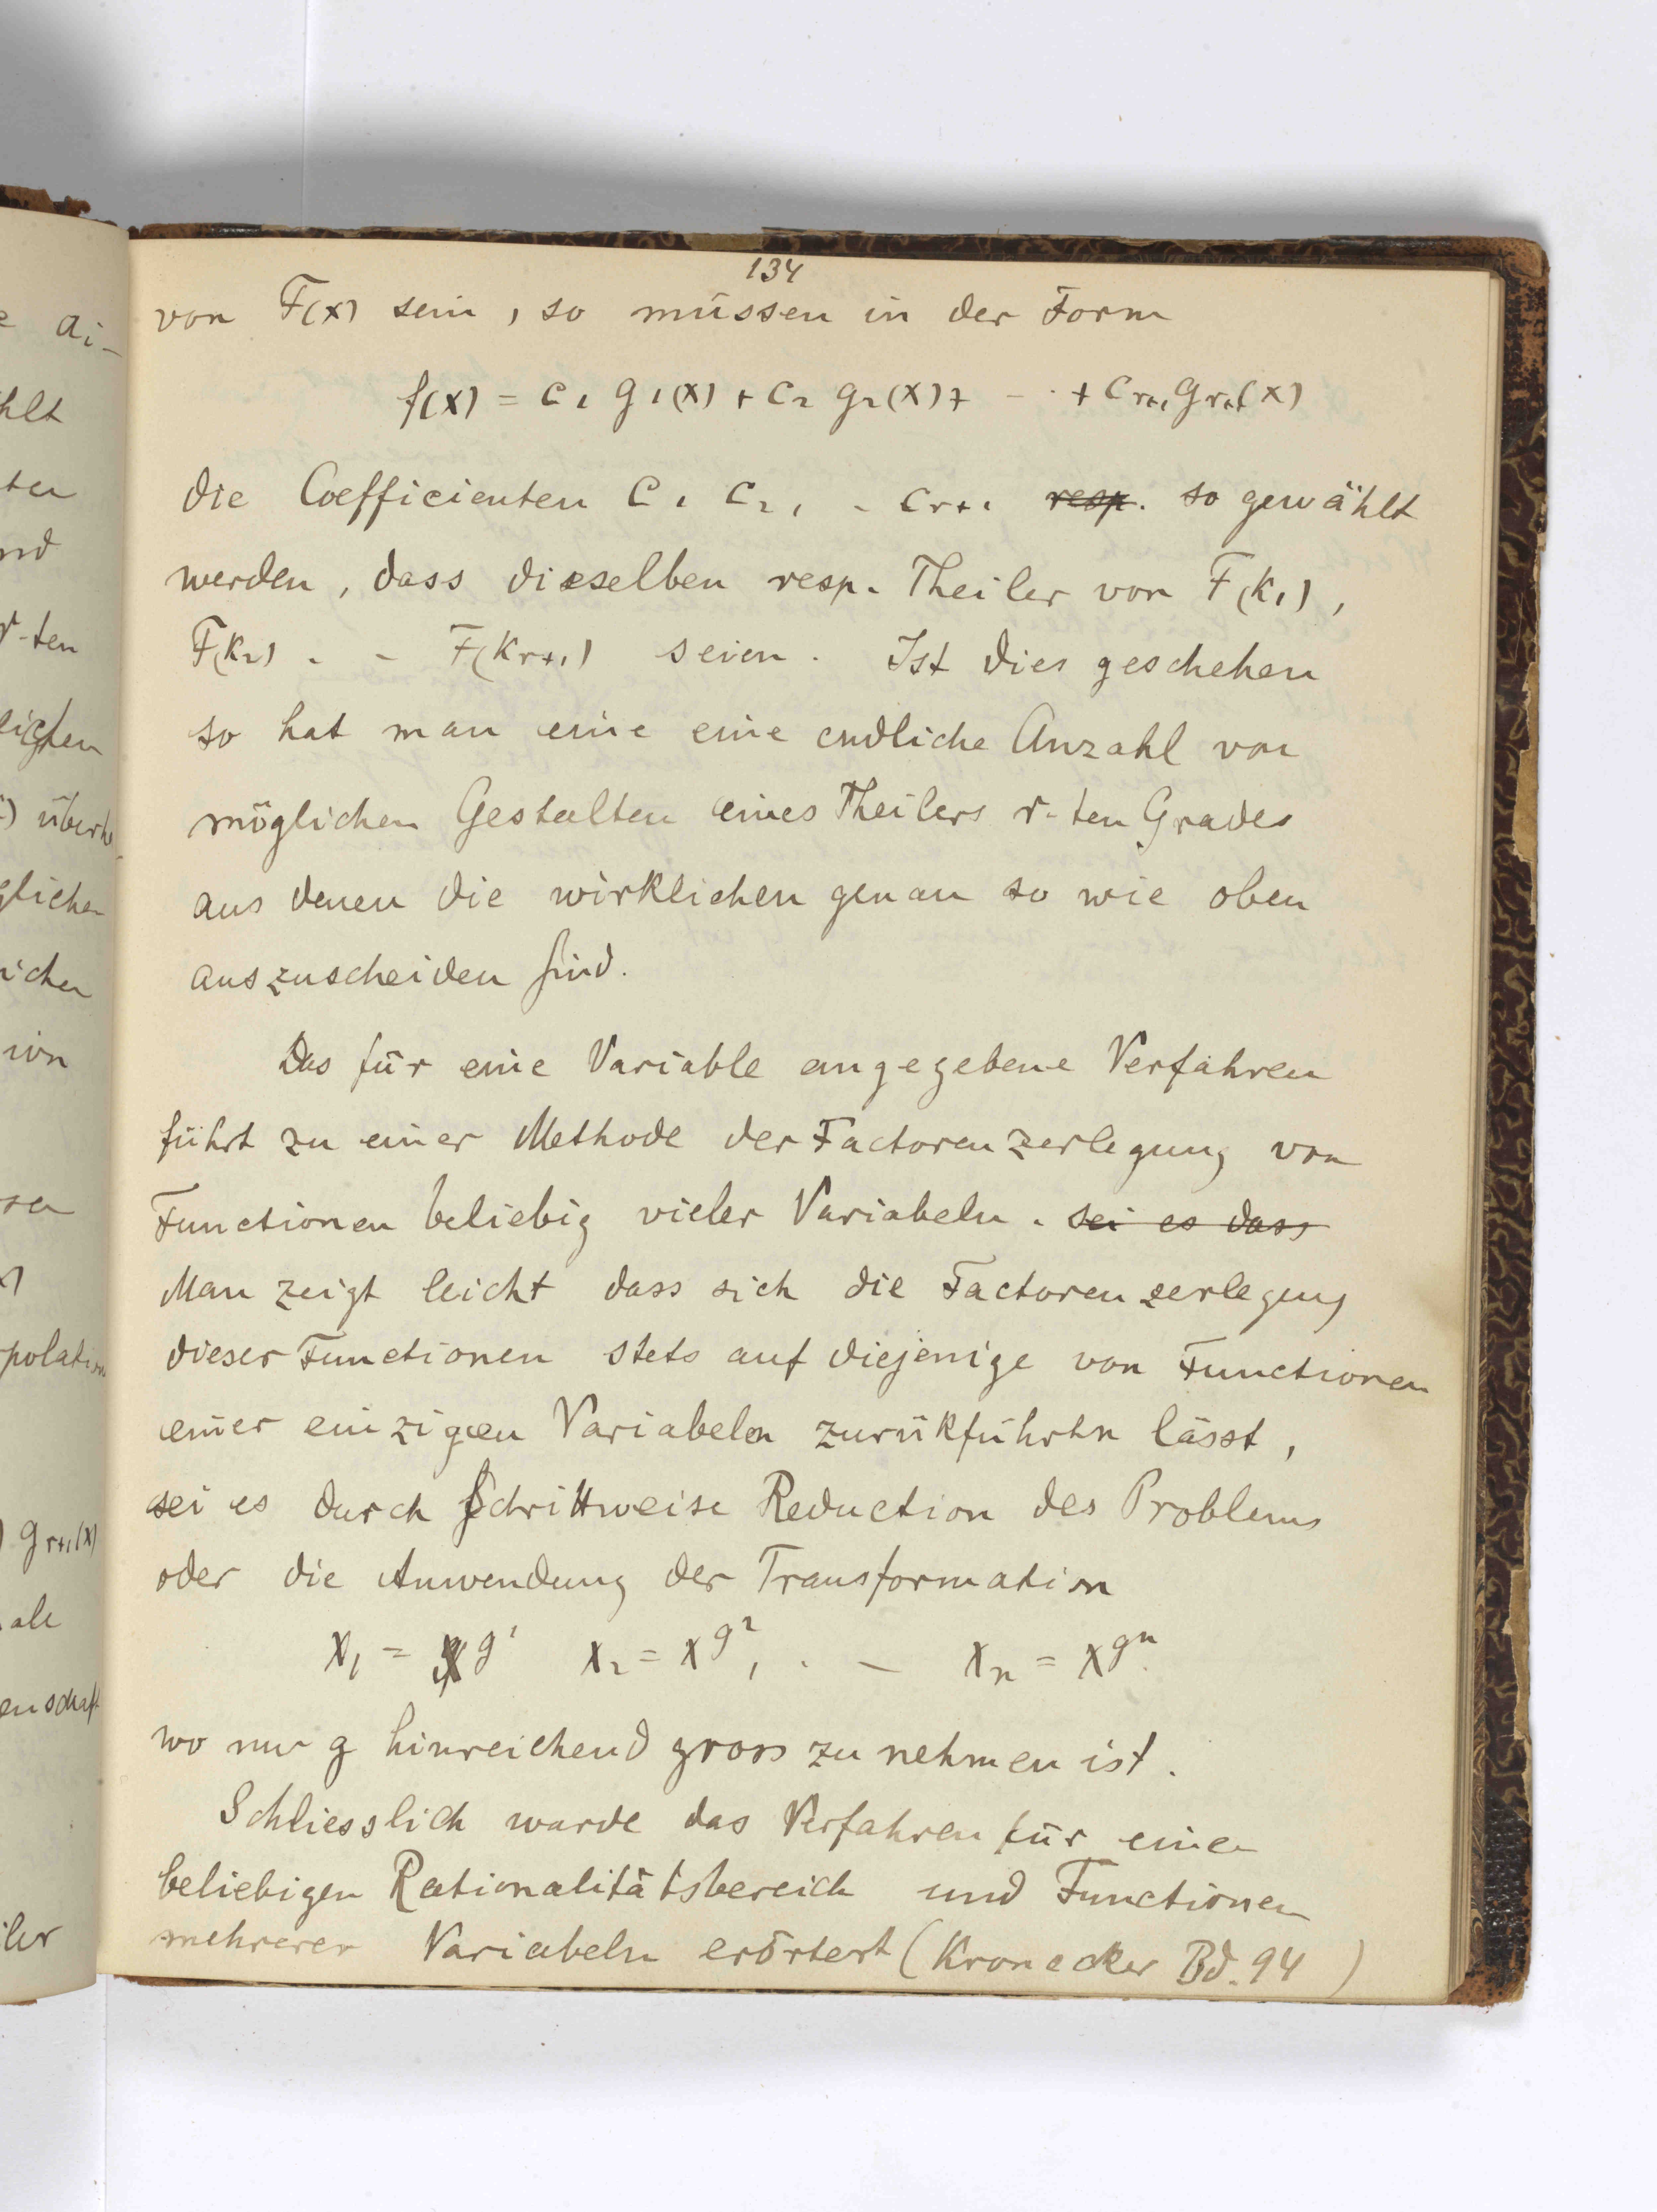 134
von F(x) sein, so müssen in der Form
f(x) = c₁ g₁(x) + c₂ g₂(x) + - · + cᵣ₊₁ gᵣ₊₁(x)
die Coefficienten c₁ c₂, - cᵣ₊₁ resp. so gewählt
werden, dass dieselben resp. Theiler von F(k₁),
F(k₂) . - F(kᵣ₊₁) seien. Ist dies geschehen
so hat man eine eine endliche Anzahl von
möglichen Gestalten eines Theilers r-ten Grades
aus denen die wirklichen genau so wie oben
auszuscheiden sind.
Das für eine Variable angegebene Verfahren
führt zu einer Methode der Factorenzerlegung von
Functionen beliebig vieler Variabeln. sei es dass
Man zeigt leicht dass sich die Factorenzerlegung
dieser Functionen stets auf diejenige von Functionen
einer einzigen Variabeln zurükführen lässt,
sei es durch Schrittweise Reduction des Problems
oder die Anwendung der Transformation
x₁ = x^g¹ x₂ = x^g², . - xₙ = x^gⁿ.
wo nur g hinreichend gross zu nehmen ist.
Schliesslich wurde das Verfahren für einen
beliebigen Rationalitätsbereich und Functionen
mehrerer Variabeln erörtert (Kronecker Bd. 94 )
ai-
hlt
ten
nd
r-ten
lichen
überh
glichen
ichen
ion
polation
gᵣ₊₁(x)
ale
enschaft
iler